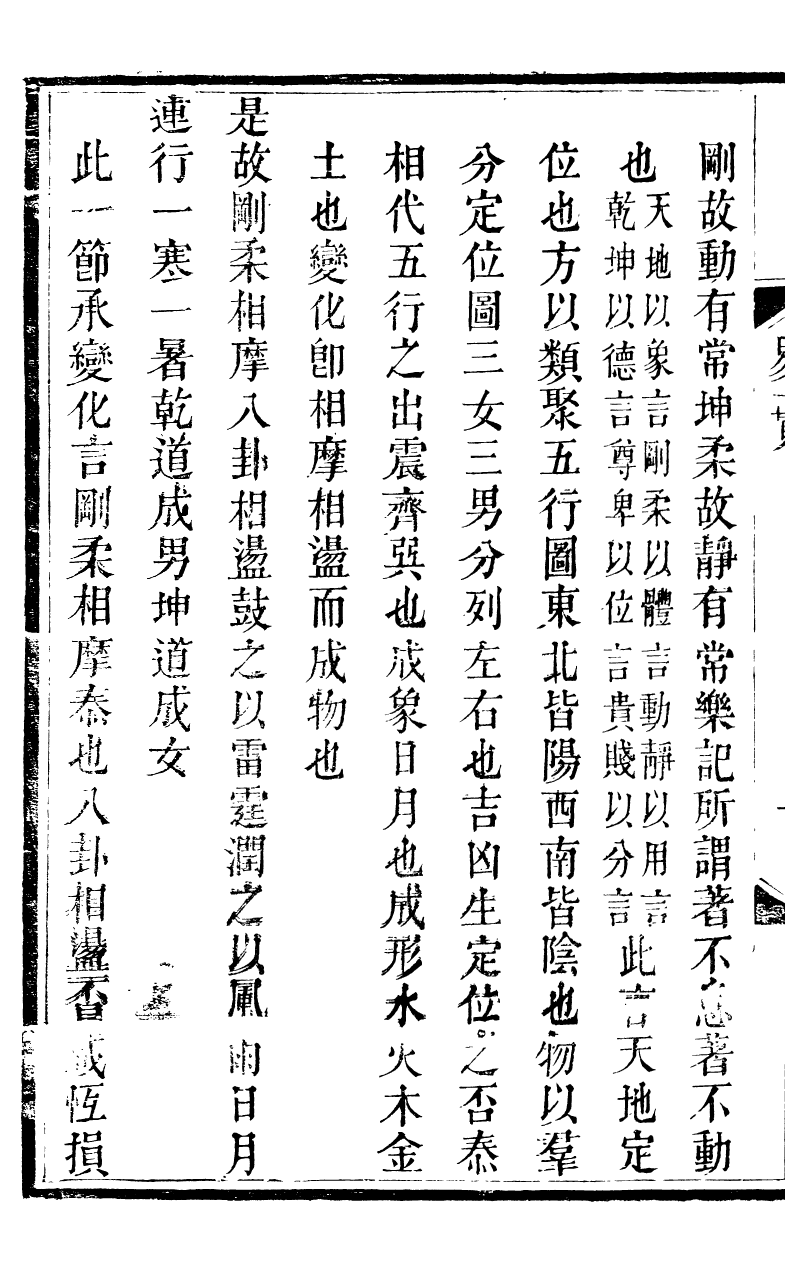 剛故動有常坤柔故靜有常樂記所謂著不息著不動
也天地以象言剛柔以體言動靜以用言乾坤以德言尊卑以位言貴賤以分言此言天地定
位也方以類聚五行圖東北皆陽西南皆陰也物以羣
分定位圖三女三男分列左右也吉凶生定位之否泰
相代五行之出震齊巽也成象日月也成形水火木金
土也變化卽相摩相盪而成物也
是故剛柔相摩八卦相盪鼓之以雷霆潤之以風雨日月
運行一寒一暑乾道成男坤道成女
此一節承變化言剛柔相摩泰也八卦相盪否咸恆損